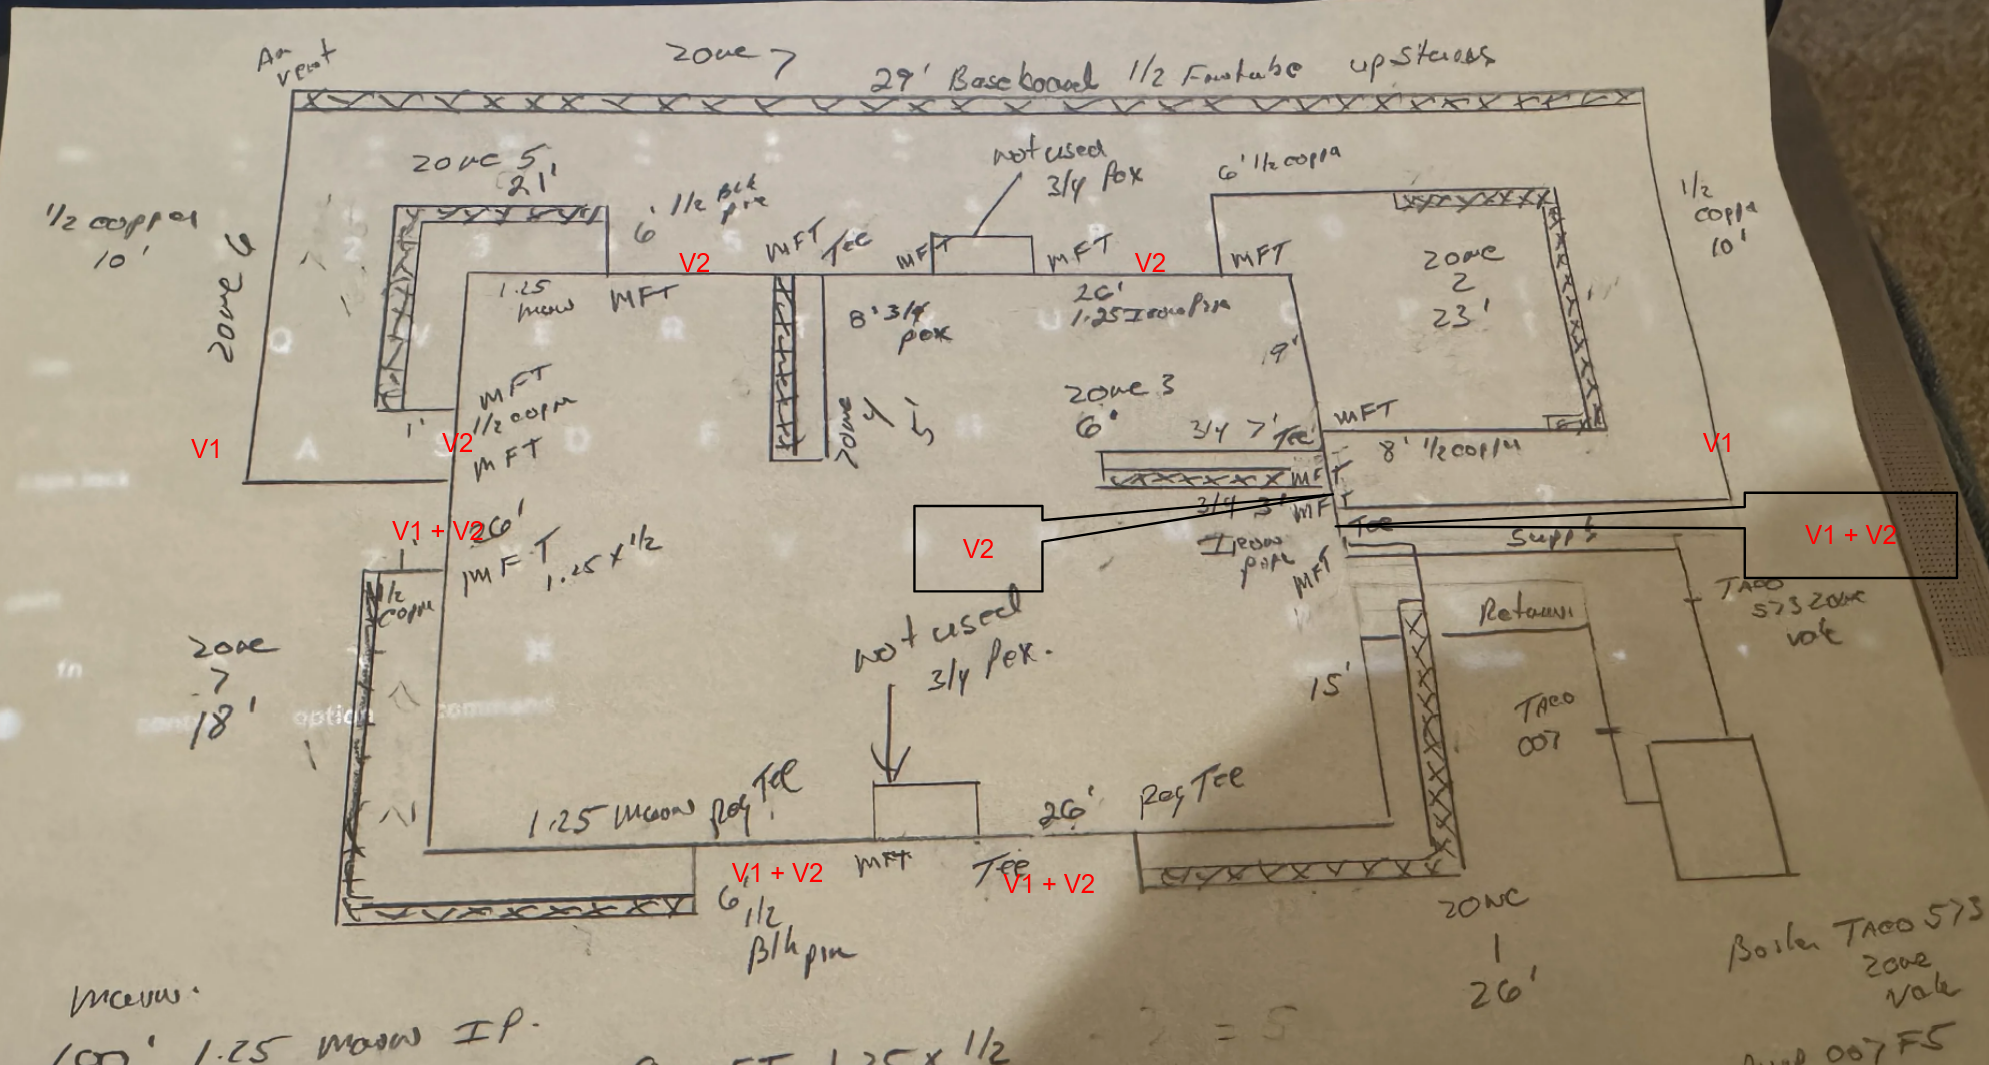 Air
vent
zone 7
29' Baseboard 1/2 Fintube upstairs
zone 5
21'
1/2 copper
10'
zone 6
6' 1/2 Blk
pipe
not used
3/4 Pex
6' 1/2 copper
1/2
copper
10'
MFT Tee
MFT
MFT
MFT
V2
V2
1.25
main
MFT
8' 3/4
pex
26'
1.25 Iron Pipe
9'
zone
2
23'
MFT
1/2 copper
MFT
1'
V1
V2
zone 4
5'
zone 3
6'
3/4 7' Tee
MFT
8' 1/2 copper
V1
MFT
3/4 3' MF
Iron
pipe
MFT
V2
Tee
Supply
V1 + V2
V1 + V2
26'
MFT
1.25 x 1/2
1'
1/2
copper
TACO
573 zone
valve
Return
zone
7
18'
not used
3/4 Pex.
15'
TACO
007
1.25 main Reg Tee
26' Reg Tee
MFT
Tee
V1 + V2
V1 + V2
6'
1/2
Blk pipe
ZONE
1
26'
Boiler TACO 573
zone
valve
main.
100' 1.25 main IP.
1.25 x 1/2
007 F5
option
command